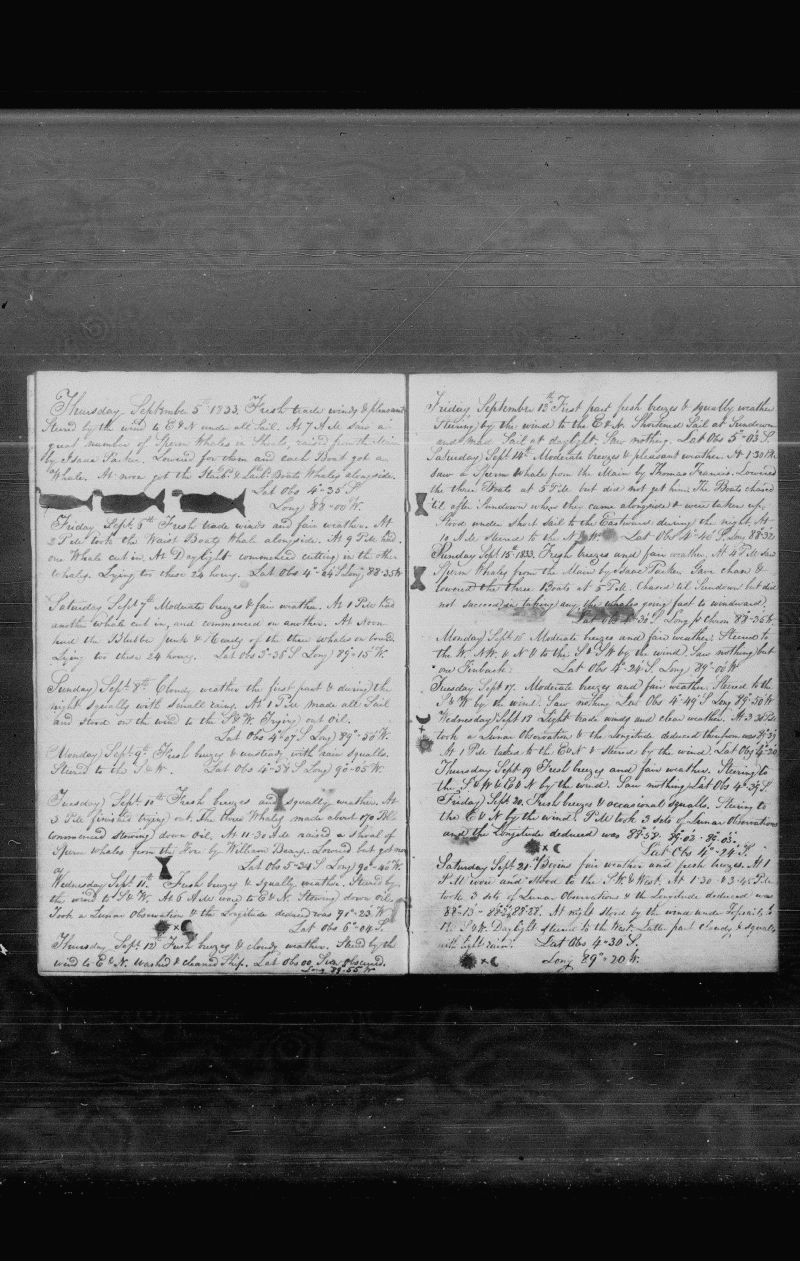 Thursday September 5th 1833. Fresh trade winds & pleasant
Steerd by the wind to E & N under all sail. At 7 AM saw a
great number of Sperm Whales in Shoals, raised from the Main
by Isaac Parker. Lowered for them and each Boat got an
Whale. At noon got the Starb & Larb Boats Whales alongside.
Lat Obs 4°-35 S.
Long 88°-00 W.
Friday Sept 6th Fresh trade winds and fair weather. At
2 PM took the Waist Boats Whale alongside. At 9 PM had
one Whale cut in. At Daylight commenced cutting in the other
whales. Lying too these 24 hours. Lat Obs 4°-24 S Long 88-35 W
Saturday Sept 7th Moderate breezes & fair weather. At 1 PM had
another whale cut in, and commenced on another. At Noon
had the Blubber Junk & Heads of the three whales on board.
Lying too these 24 hours. Lat Obs 3°-35 S Long 89°-15 W.
Sunday Sept 8th Cloudy weather the first part & during the
night squally with small rain. At 1 PM made all Sail
and stood on the wind to the S & W. Trying out Oil.
Lat Obs 4°-07 S Long 89°-50 W.
Monday Sept 9th Fresh breezes & unsteady with rain squalls.
Steerd to the S & W. Lat Obs 4°-58 S Long 90°-05 W.
Tuesday Sept 10th Fresh breezes and squally weather. At
3 PM finished trying out. The three Whales made about 170 Bbls
Commenced stowing down Oil. At 11.30 AM raised a shoal of
Sperm whales from the Fore by William Deary. Lowered but got no
Lat Obs 5-24 S Long 90°-40 W.
Wednesday Sept 11th Fresh breezes & Squally weather. Steerd by
the wind to S & W. At 6 AM wore to E & N. Stowing down Oil
Took a Lunar Observation & the Longitude deduced was 91°-23 W
Lat Obs 6°-04 S.
Thursday Sept 12th Fresh breezes & cloudy weather. Steerd by the
wind to E & N. Washed & cleaned Ship. Lat Obs 00 Sun Obscured.
Long 89-55 W
Friday September 13th First part fresh breezes & squally weather
Steering by the wind to the E & N. Shortened Sail at Sundown
and made Sail at daylight. Saw nothing. Lat Obs 5°-03 S
Saturday Sept 14th Moderate breezes & pleasant weather. At 1.30 PM
saw a Sperm Whale from the Main by Thomas Francis. Lowered
the three Boats at 5 PM but did not get him. The Boats chased
til after Sundown when they came alongside & were taken up.
Stood under short sail to the Eastward during the night. At
10 AM steerd to the N & W. Lat Obs 4°-40 S. Long 88-32
Sunday Sept 15th 1833. Fresh breezes and fair weather. At 4 PM saw
Sperm Whales from the Main by Isaac Parker Gave chase &
lowered the three Boats at 5 PM. Chased til Sundown but did
not succeed in taking any, the whales going fast to windward.
Lat Obs 4-30 S Long pr Chron 88-35 W.
Monday Sept 16 Moderate breezes and fair weather. Steered to
the W. NW. & N & to the S & W by the wind. Saw nothing but
one Finback. Lat Obs 4-24 S. Long 89-00 W
Tuesday Sept 17. Moderate breezes and fair weather. Steerd to the
S & W by the wind. Saw nothing Lat Obs 4°-49 S Long 89-30 W
Wednesday Sept 18 Light trade winds and clear weather. At 3.30 PM
took a Lunar Observation & the Longitude deduced therefrom was 89-39
At 1 PM tacked to the E & N & steerd by the wind. Lat Obs 4°-30
Thursday Sept 19 Fresh breezes and fair weather. Steering to
the S & W & E & N by the wind. Saw nothing Lat Obs 4-39 S.
Friday Sept 20, Fresh breezes & occasional squalls. Steering to
the E & N by the wind. PM took 3 sets of Lunar Observations
and the Longitude deduced was 88-58. 89-03. 89-03.
Lat Obs 4°-24 S.
Saturday Sept 21. fair weather and fresh breezes. At 1
PM wore and stood to the S.W. & West. At 1.30 & 3.45 PM
took 3 sets of Lunar Observations & the Longitude deduced was
88-13 - 88-32, 88-28. At night stood by the wind under Topsails to
the S & W. Daylight steerd to the West. Latter part cloudy & squally
with light rain. Lat Obs 4-30 S.
Long 89°-20 W.